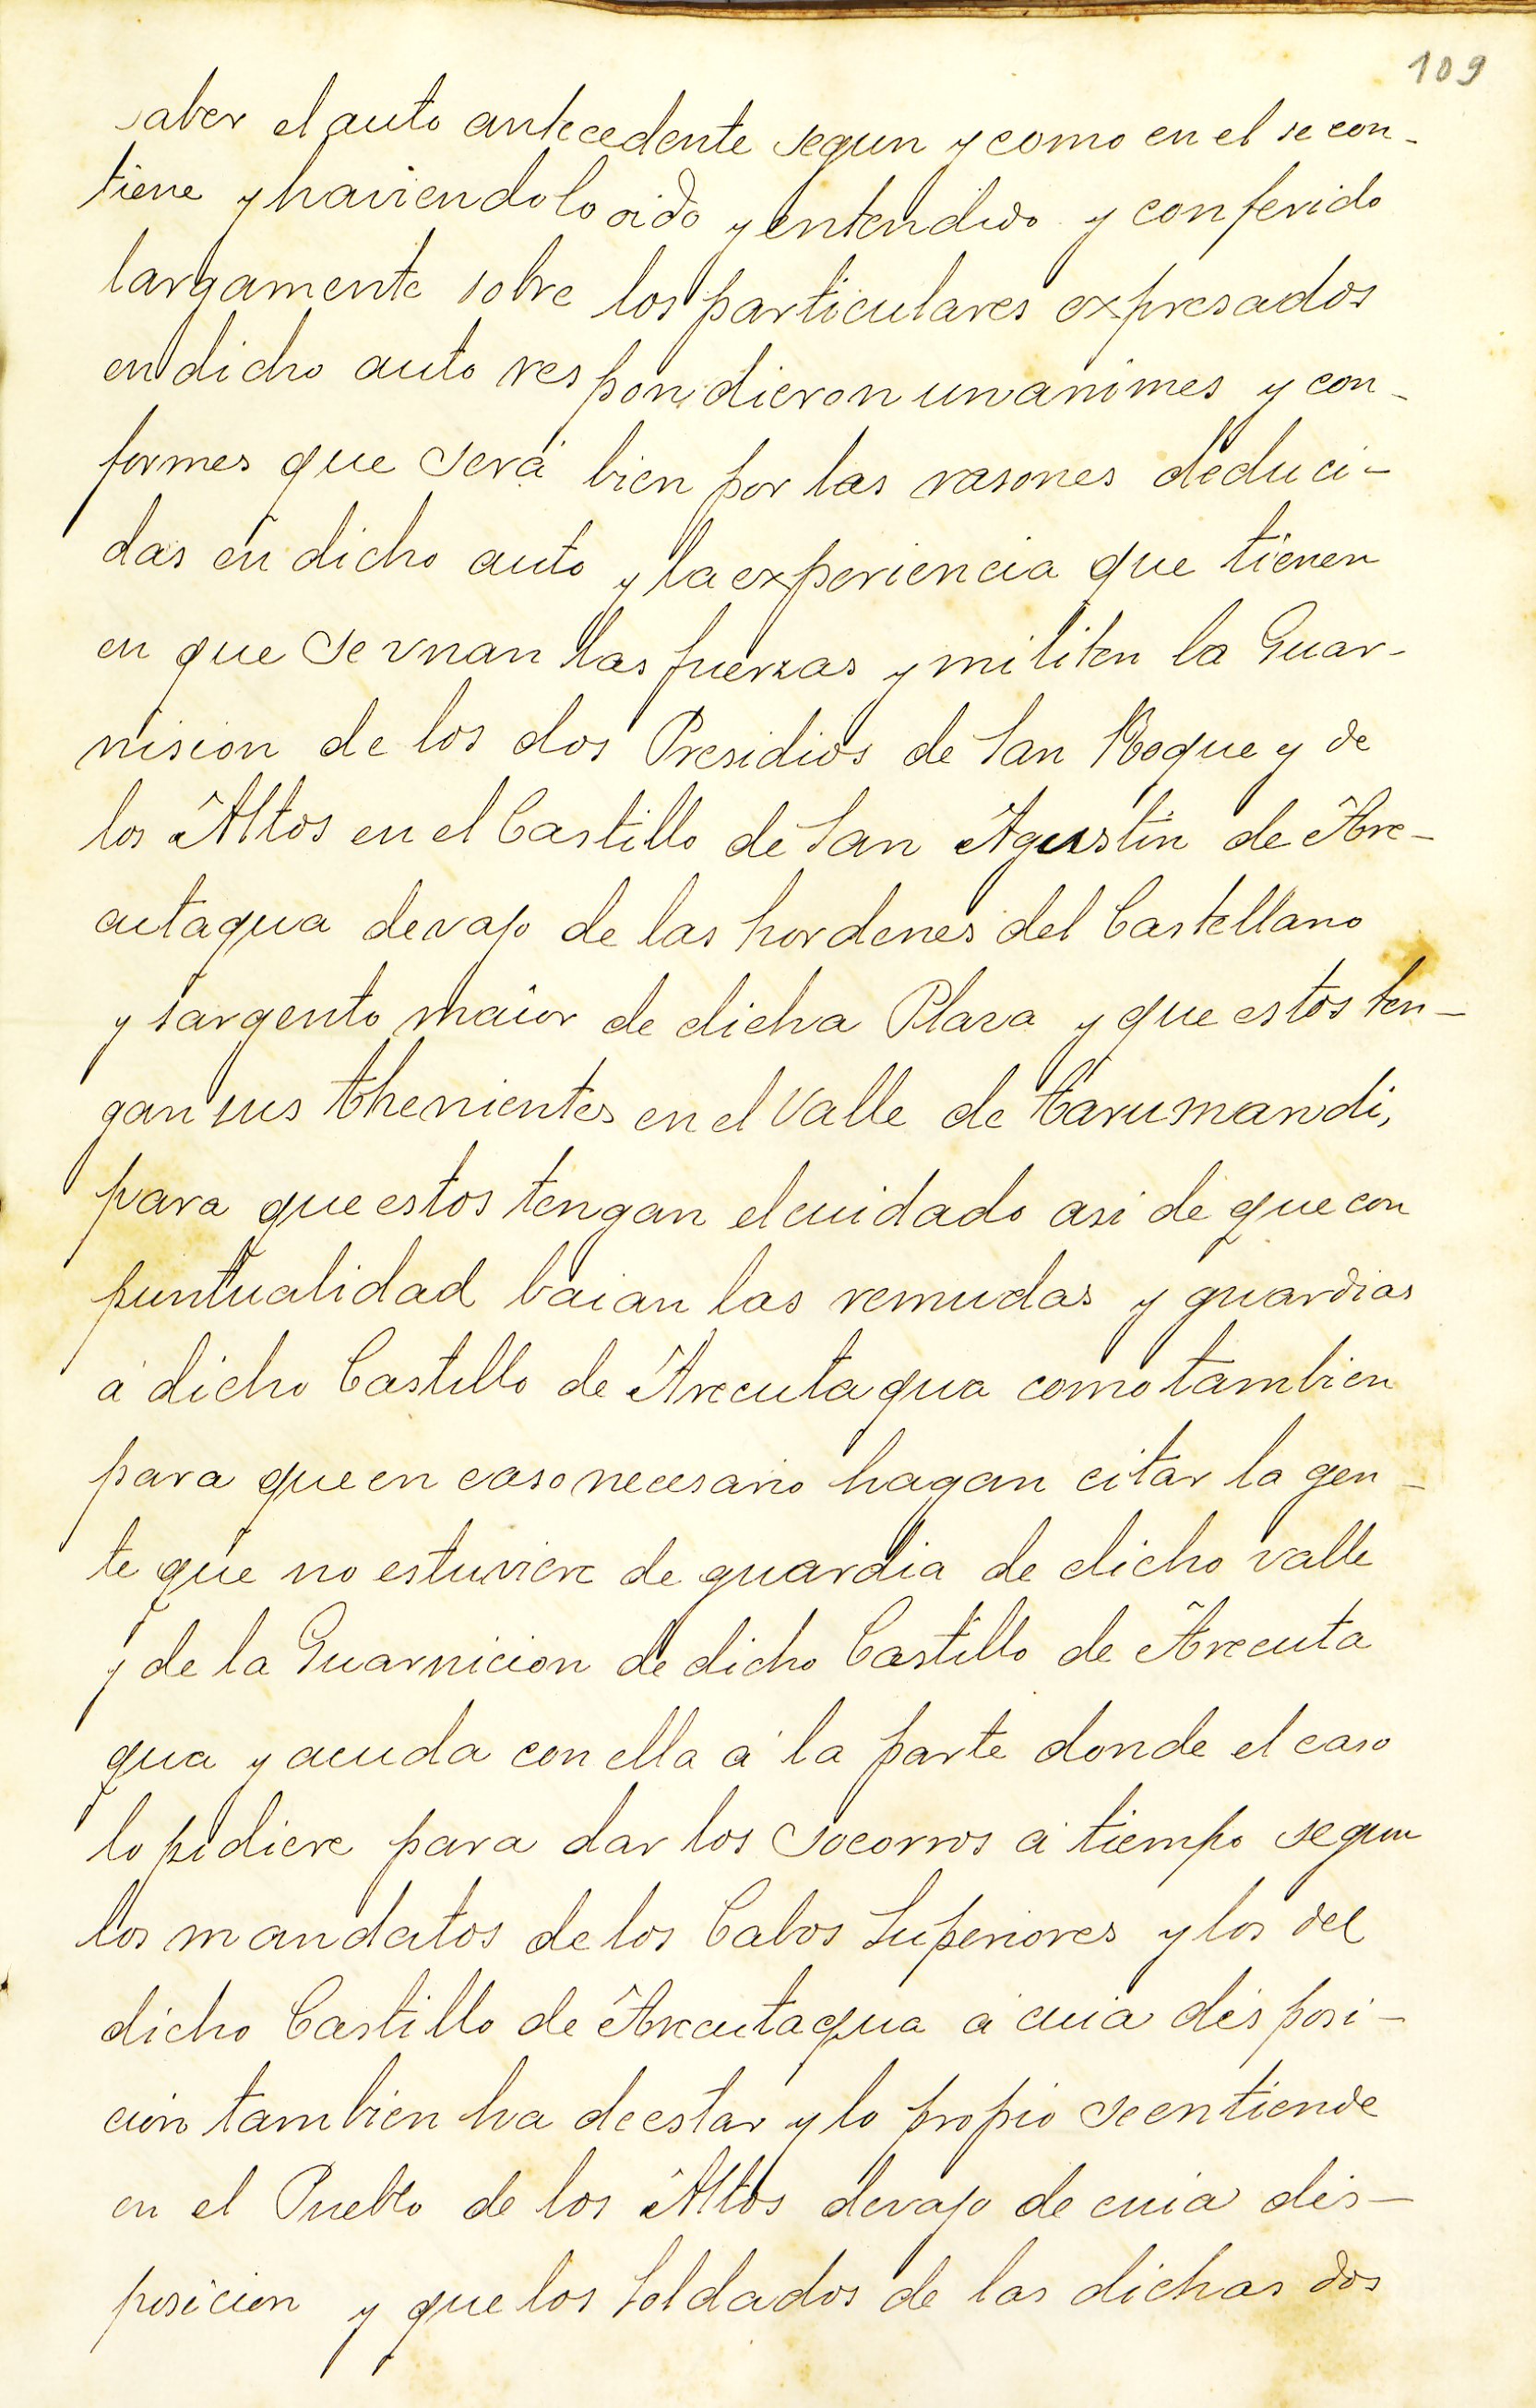 109
saber el auto antecedente segun y como en el se con-
tiene y haviendolo oido y entendido y conferido
largamente sobre los particulares expresados
en dicho auto respondieron unanimes y con-
formes que será bien por las rasones deduci-
das en dicho auto y la experiencia que tienen
en que se vnan las fuerzas y militen la Guar-
nision de los dos Presidios de San Roque y de
los Altos en el Castillo de San Agustin de Are-
cutaqua devajo de las hordenes del Castellano
y sargento maior de dicha Plaza y que estos ten-
gan sus thenientes en el Valle de tarumandi,
para que estos tengan el cuidado asi de que con
puntualidad baian las remudas y guardias
á dicho Castillo de Arecutaqua como tambien
para que en caso necesario hagan citar la gen-
te que no estuviere de guardia de dicho valle
y de la Guarnicion de dicho Castillo de Arecuta
qua y acuda con ella á la parte donde el caso
lo pidiere para dar los socorros á tiempo segun
los mandatos de los Cabos Superiores y los del
dicho Castillo de Arecutaqua á cuia disposi-
cion tambien ha de estar y lo propio se entiende
en el Pueblo de los Altos devajo de cuia dis-
posicion y que los Soldados de las dichas dos